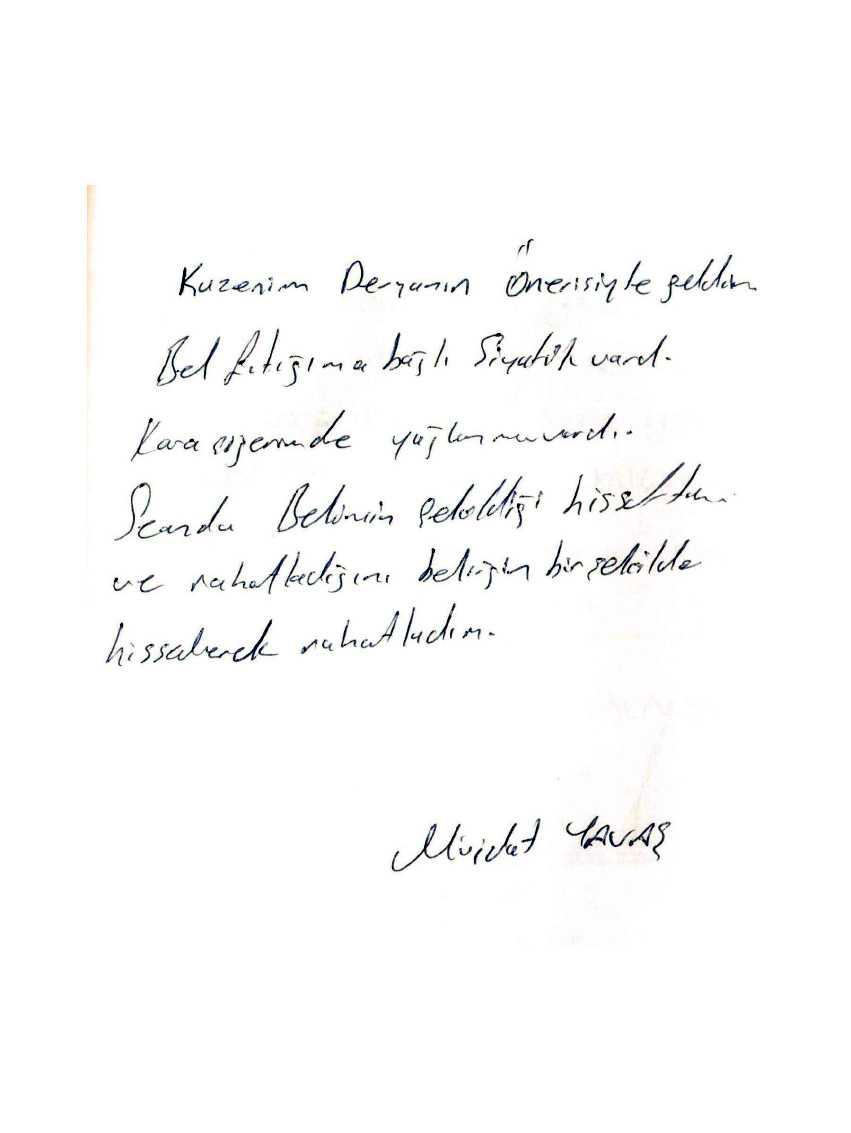 Kuzenim Deryanın Önerisiyle geldim.
Bel fıtığıma bağlı Siyatik vardı.
Karaciğerimde yağlanma vardı.
Seansda Belimin çekildiği hissettim
ve rahatladığını belirgin bir şekilde
hissederek rahatladım.
YAVAŞ